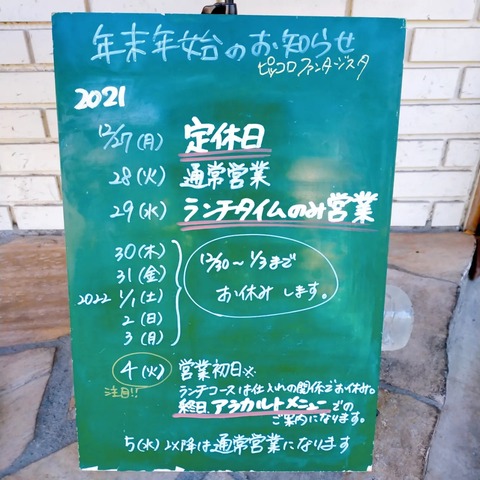 年末年始のお知らせ
ピッコロ ファンタジスタ
2021
12/27(月) 定休日
28(火) 通常営業
29(水) ランチタイムのみ営業
30(木)
31(金)
2022 1/1(土)
2(日)
3(月)
12/30～1/3まで
お休みします。
4(火) 営業初日※
注目!!
ランチコースは仕入れの関係でお休み。
終日、アラカルトメニューでの
ご案内になります。
5(水)以降は通常営業になります